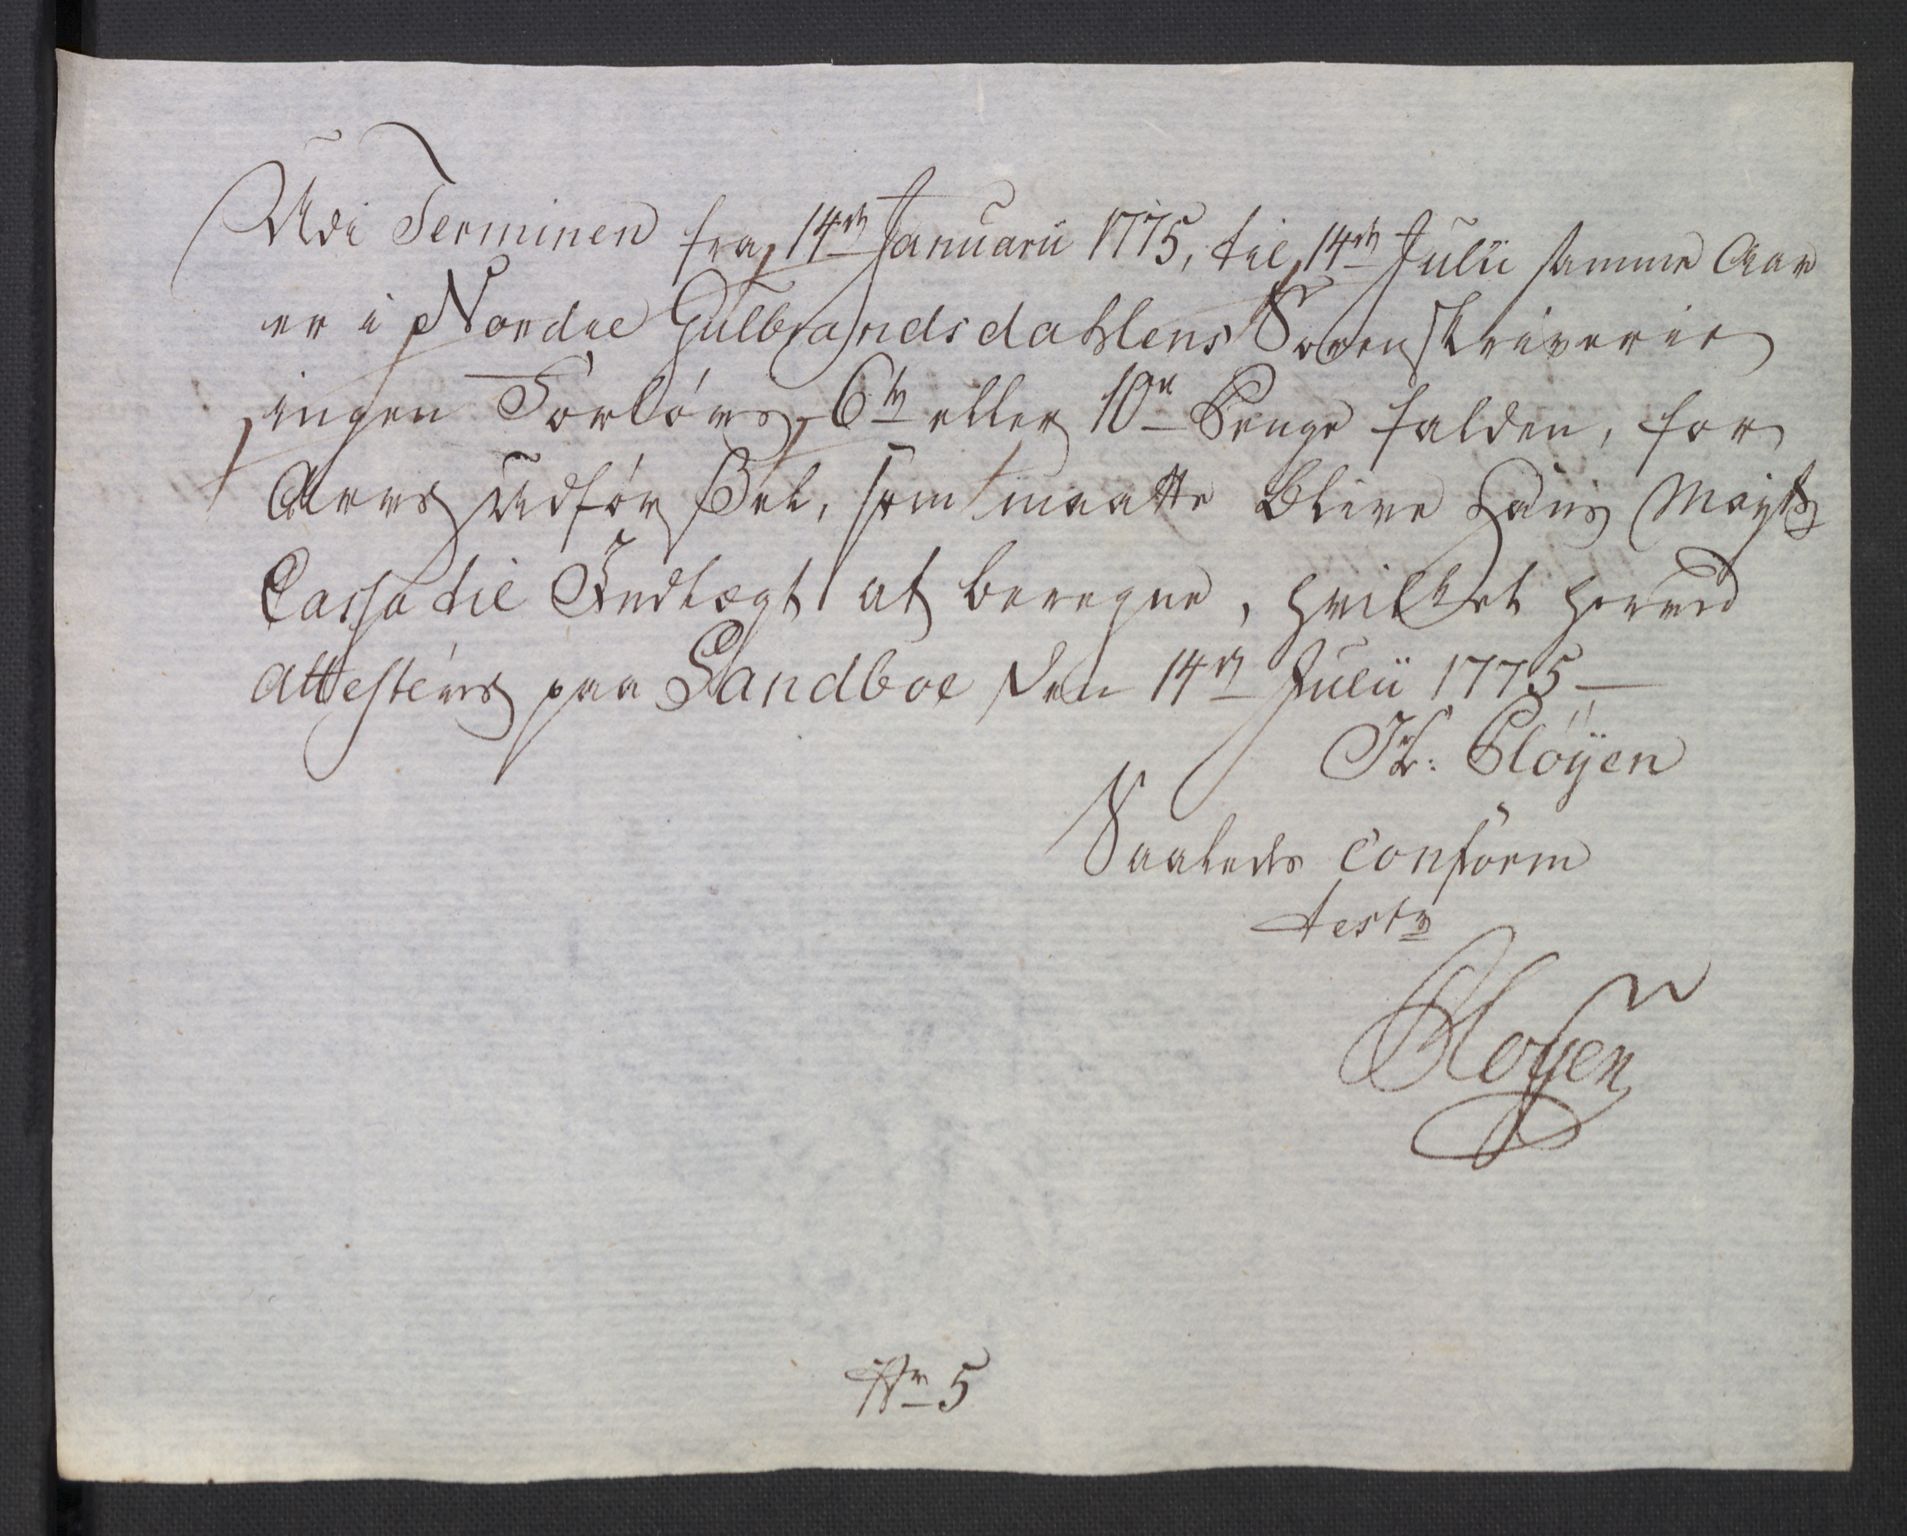 Udi Terminen fra 14de Januarii 1775, til 14de Julii samme Aar
er i Nordre Gulbrandsdahlens Sorenskriverie
ingen Forlovs, 6te eller 10de Penge falden, for
Arvs Udførsel, som maatte blive Hans Mayts
Cassa til Indtægt at beregne, hvilket herved
attesteres paa Sandboe den 14de Julii 1775
Pløÿen
Saaledes conform
test
Pløÿen
No 5